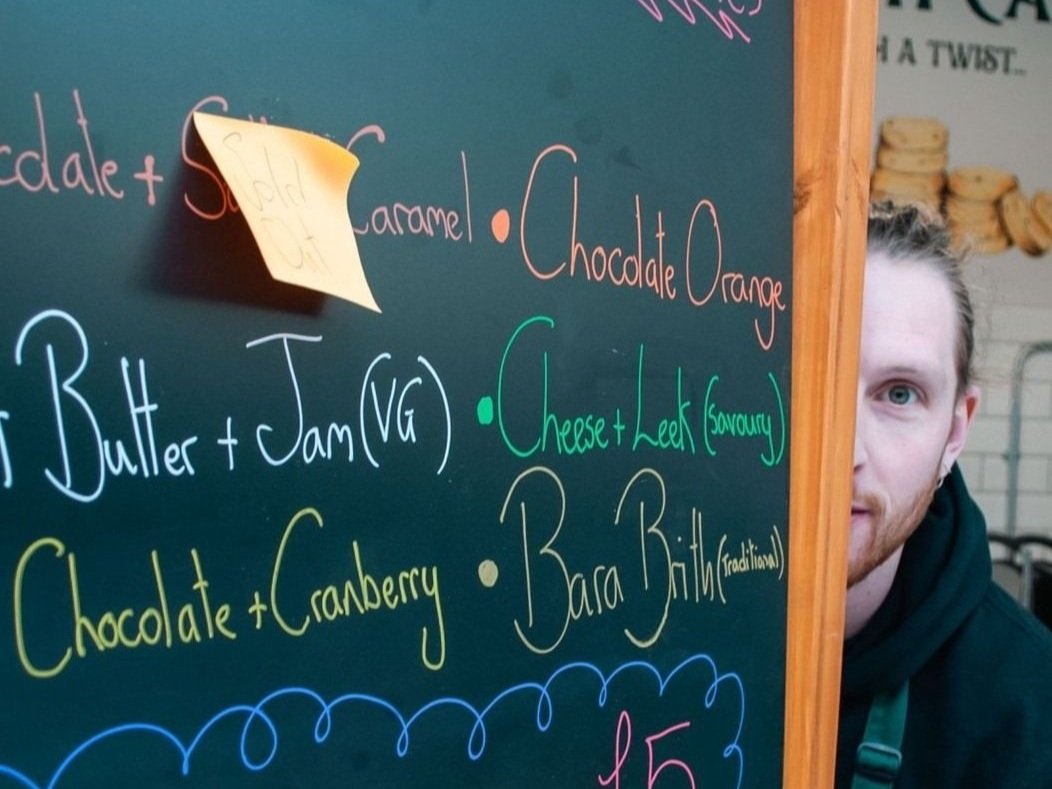 H A TWIST...
colate + Caramel • Chocolate Orange
Sold
Out
Butter + Jam (VG) • Cheese + Leek (Savoury)
Chocolate + Cranberry • Bara Brith (Traditional)
£5